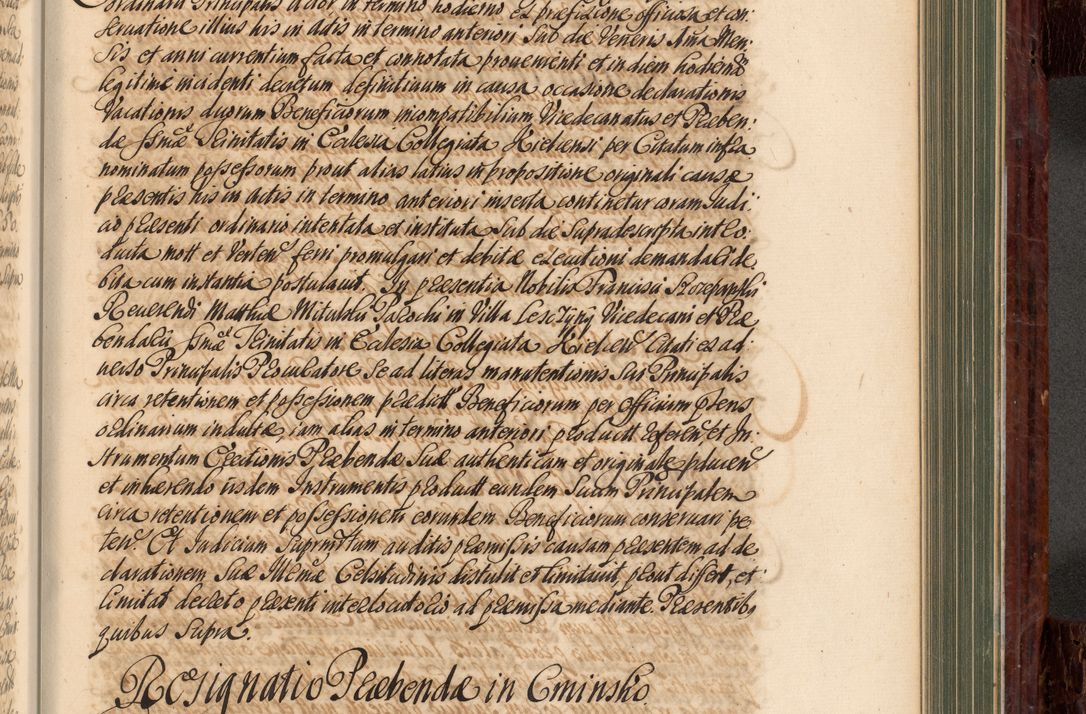 Ordinarii Principalis actor in termino hodierno ex praefixione officiosa et con:
seruatione illius his in actis in termino anteriori sub die Veneris Ana Men:
sis et anni currentium facta et connotata prouenienti et in diem hodiernũ
legitime incidenti decretum definitiuum in causa occasione declarationis
Vacationis duorum Beneficiorum incompatibilium Vicedecanatus et Praeben:
dae Ssmae Trinitatis in Ecclesia Collegiata Kielcensi per Citatum infra
nominatum possessorum prout alias latius in propositione originali causae
praesentis his in actis in termino anteriori inserta continetur coram Judi:
cio praesenti ordinario intentata et instituta sub die supradescripta intro:
ducta mott et Verten ferri promulgari et debitae executioni demandari de:
bita cum instantia postulauit. In praesentia Nobilis Francisci Szczepanski
Reuerendi Matthiae Mitulski Parochi in Villa Leszczyny Vicedecani et Prae
bendarii Ssmae Trinitatis in Ecclesia Collegiata Kielcen Citati ex ad:
uerso Principalis Procuratore se ad literas manutentionis sui Principalis
circa retentionem et possessionem praedictt Beneficiorum per officium praesens
ordinarium indultae, iam alias in termino anteriori productt referen et In:
strumentum Erectionis Praebendae suae authenticum et originale producen
et inhaerendo iisdem Instrumentis productt eundem suum Principalem
circa retentionem et possessionem eorundem Beneficiorum conseruari pe
ten. Et Judicium suprascriptum auditis praemissis causam praesentem ad de
clarationem suae Illmae Celsitudinis distulit et limitauit, prout differt, et
limitat decreto praesenti interlocutorio ad praemissa mediante. Praesentibus
quibus supra.
Resignatio Praebendae in Cminsko